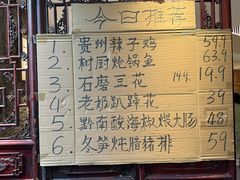 今日推荐
1. 贵州辣子鸡 59.9
2. 村厨炝锅鱼 63.9
3. 石磨豆花 14.9 19.9
4. 老奶趴蹄花 39
5. 黔南酸海椒煨大肠 48
6. 冬笋炖腊猪排 59